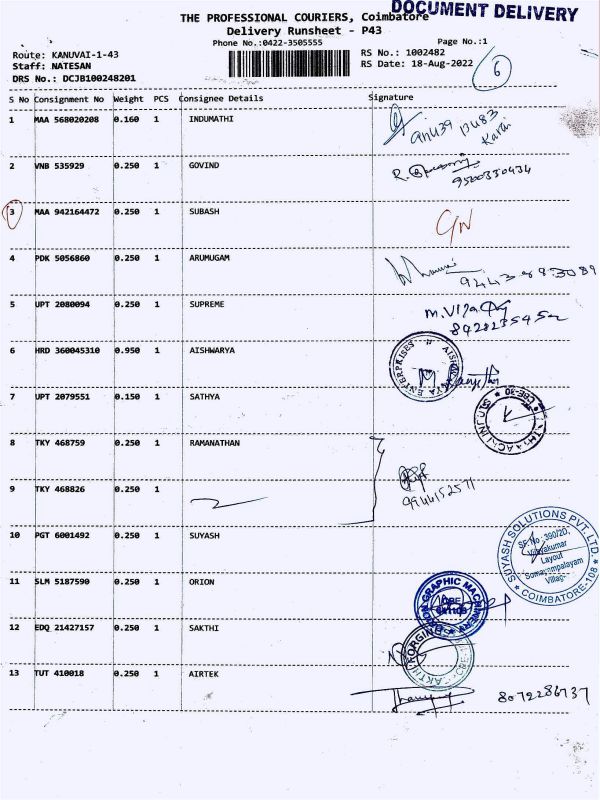 DOCUMENT DELIVERY
THE PROFESSIONAL COURIERS, Coimbatore
Delivery Runsheet - P43
Phone No.:0422-3505555
Page No.:1
Route: KANUVAI-1-43
RS No.: 1002482
Staff: NATESAN
RS Date: 18-Aug-2022
6
DRS No.: DCJB100248201
S No Consignment No Weight PCS Consignee Details Signature
1 MAA 568020208 0.160 1 INDUMATHI
2 VNB 535929 0.250 1 GOVIND
9500330434
3 MAA 942164472 0.250 1 SUBASH
4 PDK 5056860 0.250 1 ARUMUGAM
5 UPT 2080094 0.250 1 SUPREME
6 HRD 360045310 0.950 1 AISHWARYA
ENTERPRISES
7 UPT 2079551 0.150 1 SATHYA
CBE-30
8 TKY 468759 0.250 1 RAMANATHAN
9944152571
9 TKY 468826 0.250 1
10 PGT 6001492 0.250 1 SUYASH
SUYASH SOLUTIONS PVT. LTD.
SF.No: 390/20,
Vijayakumar
Layout
Somayampalayam
Village
COIMBATORE-108
11 SLM 5187590 0.250 1 ORION
12 EDQ 21427157 0.250 1 SAKTHI
13 TUT 410018 0.250 1 AIRTEK
8072286737